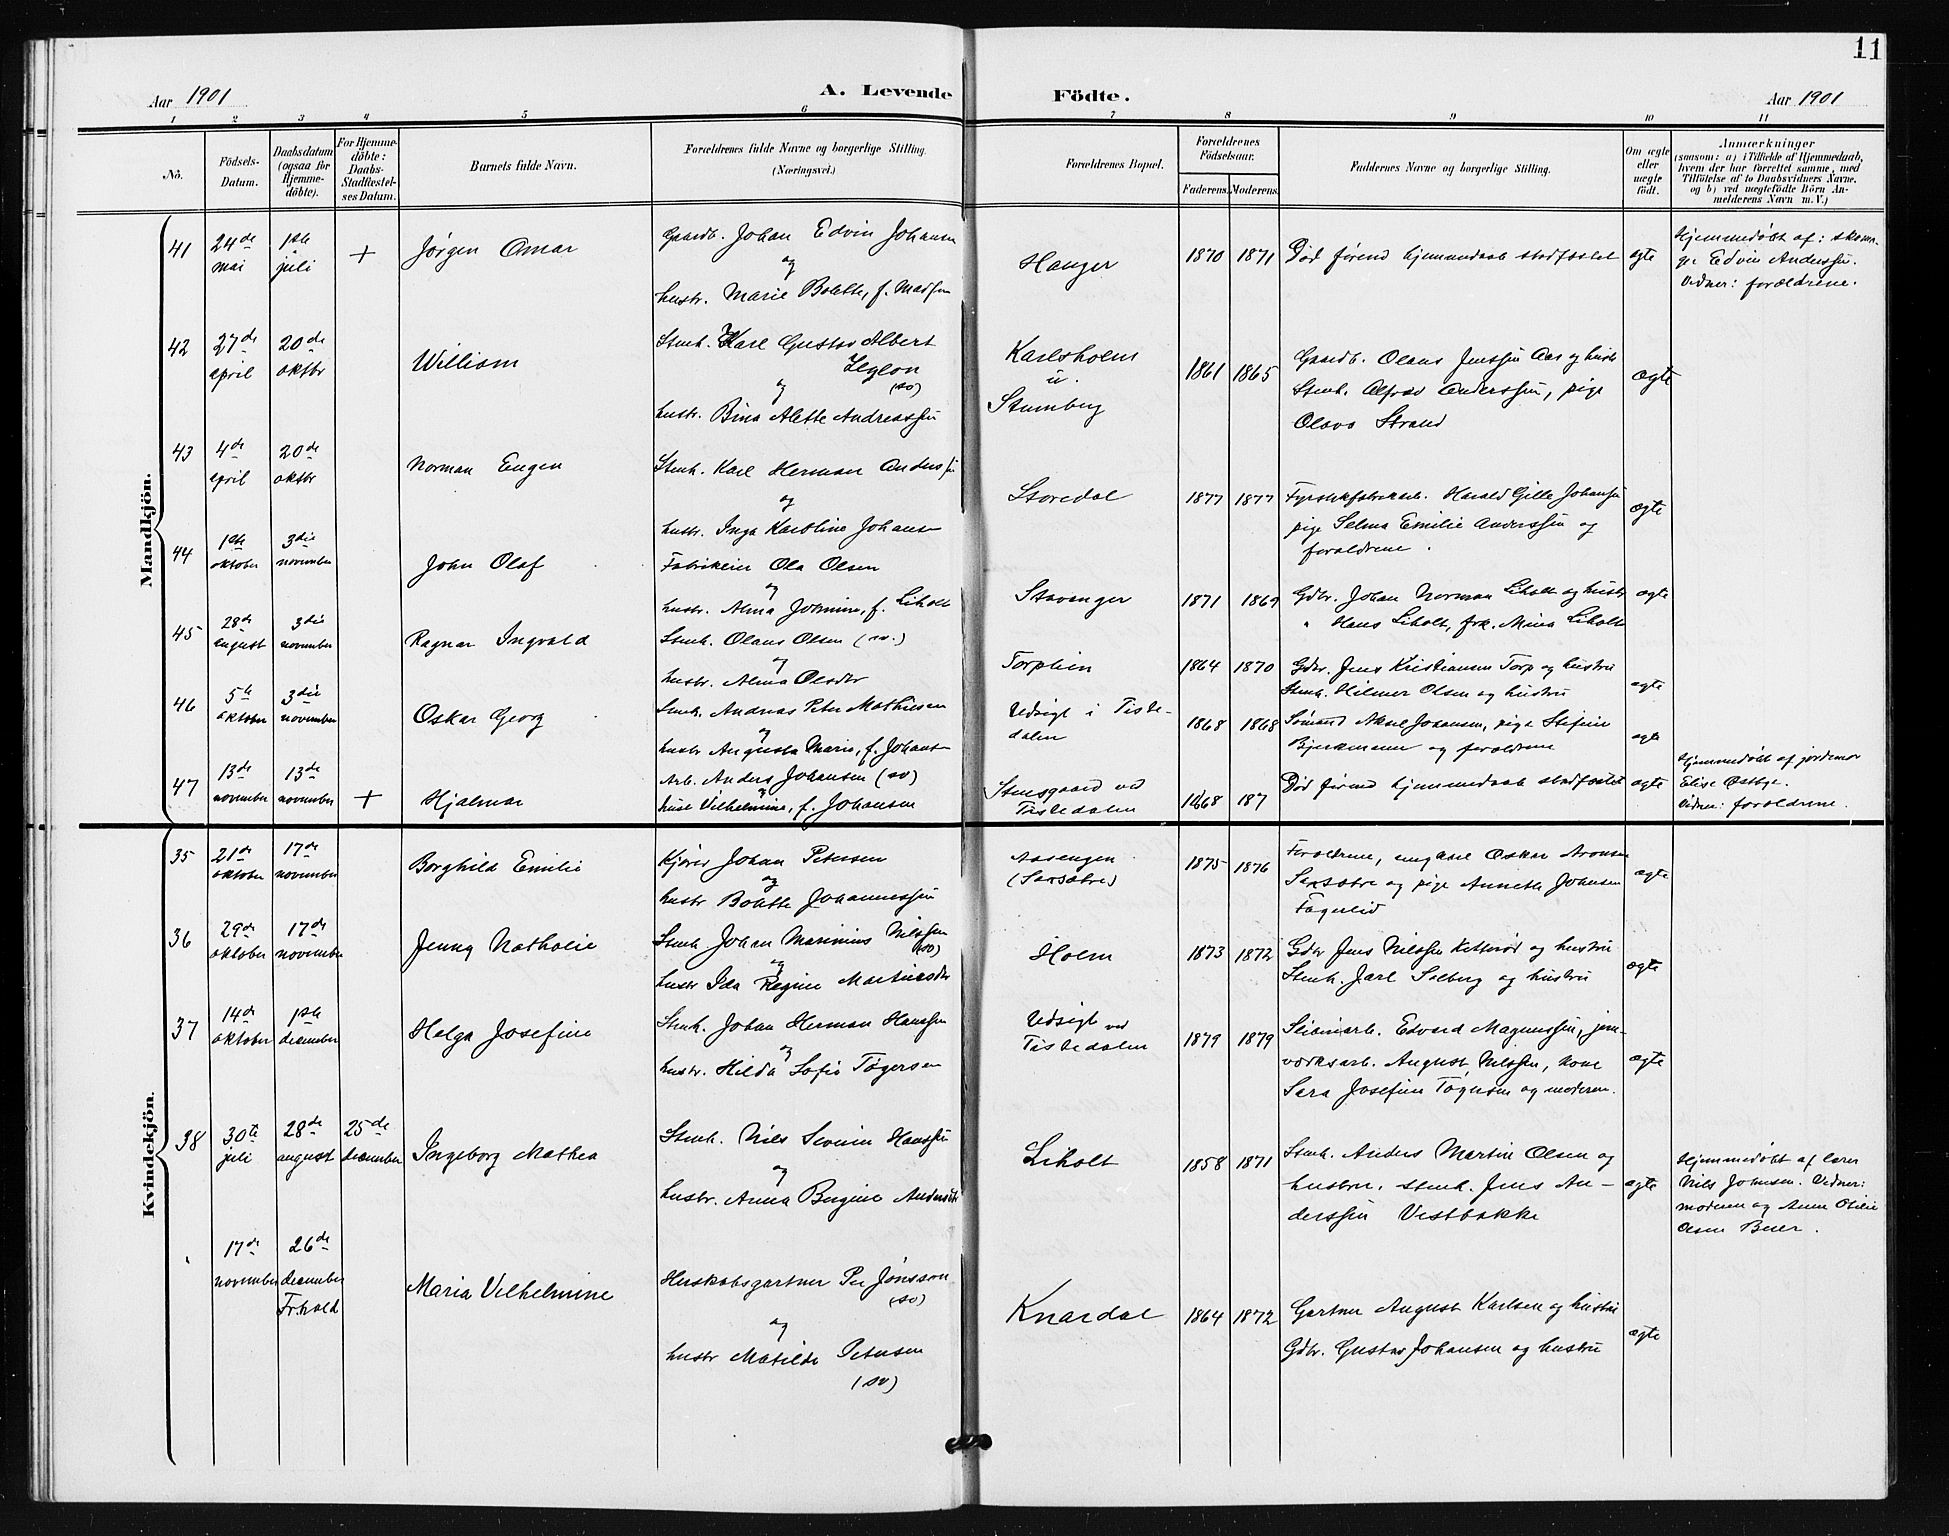 11
Aar 1901
A. Levende Födte.
Aar 1901
1 2 3 4 5 6 7 8 9 10 11
No.
Födsels-Datum.
Daabsdatum (ogsaa for Hjemme-döbte).
For Hjemme-döbte: Daabs-Stadfæstel-ses Datum.
Barnets fulde Navn.
Forældrenes fulde Navne og borgerlige Stilling. (Næringsvei.)
Forældrenes Bopæl.
Forældrenes Födselsaar.
Faderens. Moderens.
Faddernes Navne og borgerlige Stilling.
Om ægte eller uægte födt.
Anmærkninger
(saasom: a) i Tilfælde af Hjemmedaab,
hvem der har forrettet samme, med
Tilföielse af to Daabsvidners Navne,
og b) ved uægtefödte Börn An-
melderens Navn m. V.)
Mandkjön.
41 24de mai 1ste juli + Jørgen Omar
Gaardb. Johan Edvin Johansen
og
hustr. Marie Bolette, f. Madsen
Hauger 1870 1871 Død førend hjemmedaab stadfæstet ægte
Hjemmedøbt af: skoma-
ger Edvin Anderssen.
Vidner: forældrene.
42 27de april 20de oktbr William
Stenh. Karl Gustav Albert
(sv)
og
hustr. Bina Alette Andreassen
Karlsholm
u.
Stumberg
1861 1865
Gaardb. Olaus Jenssen Aas og hustr
Stenh. Alfred Anderssen, pige
Olava Strand
ægte
43 4de april 20de oktbr Norman Eugen
Stenh. Karl Herman Anderssen
og
hustr. Inga Karoline Johans-
Storedal 1877 1877
Fyrstikfabrikarb. Harald Gille Johansen
pige Selma Emilie Anderssen og
forældrene.
ægte
44 1ste oktober 3die november John Olaf
Fabrikeier Ola Olsen
og
hustr. Alma Jonine, f. Liholt
Stavanger 1871 1869
Gdbr. Johan Norman Liholt og hustr
" Hans Liholt, frk. Mina Liholt
ægte
45 28de august 3die november Ragnar Ingvald
Stenh. Olaus Olsen (sv.)
og
hustr. Alma Olsdtr
Torplien 1864 1870
Gdbr. Jens Kristiansen Torp og hustru
Stenh. Hilmer Olsen og hustru
ægte
46 5te oktober 3die november Oskar Georg
Stenh. Andreas Peter Mathiesen
og
hustr Augusta Marie, f. Johans-
Udsigt i Tiste-
dalen
1868 1868
Sømand Aksel Johansen, pige Stefine
Bjerkmann og forældrene
ægte
47 13de november 13de november + Hjalmar
Arb. Anders Johansen (sv)
og
Vilhelmine, f. Johansen
Stensgaard ved
Tistedalen
1868 187
Død førend hjemmedaab stadfæstet ægte
Hjemmedøbt af jordemor
Elise Østbye.
Vidner: forældrene.
Kvindekjön.
35 21de oktober 17de november Borghild Emilie
Kjører Johan Petersen
og
hustr Bolette Johannessen
Aasengen
(Saxsøtre)
1875 1876
Forældrene, ungkarl Oskar Aronsen
Saxsøtre og pige Annette Johansen
Fagerlid
ægte
36 29de oktober 17de november Jenny Nathalie
Stenh Johan Marinius Nilssen
(sv)
og
hustr Ida Regine Martinsdtr
Holm 1873 1872
Gdbr Jens Nilssen Ketterød og hustru
Stenh. Jarl Solberg og hustru
ægte
37 14de oktober 1ste december Helga Josefine
Stenh. Johan Herman Hanssen
og
hustr. Hilda Sofie Tøgersen
Udsigt ved
Tistedalen
1879 1879
Sliberiarb. Edvard Magnussen, jern-
værksarb. August Nilssen, kone
Sara Josefine Tøgersen og moderen.
ægte
38 30te juli 28de august 25de december Ingeborg Mathea
Stenh. Nils Severin Hanssen
og
hustr. Anna Bergine Andersdtr
Liholt 1858 1871
Stenh. Anders Martin Olsen og
hustru, stenh. Jens An-
derssen Vestbakke
ægte
Hjemmedøbt af lærer
Nils Johnsen. Vidner:
moderen og Anne Otilie
Olsen Beier.
17de november 26de december Fr.hald Maria Vilhelmine
Herskabsgartner Per Jönsson
(sv)
og
hustr Matilda Petersen
(sv)
Knardal 1864 1872
Gartner August Karlsen og hustru
Gdbr. Gustav Johansen og hustru
ægte